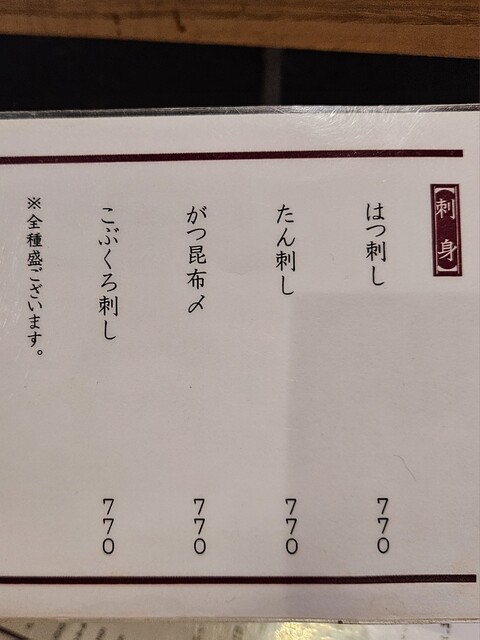 刺身
はつ刺し 770
たん刺し 770
がつ昆布〆 770
こぶくろ刺し 770
※全種盛ございます。